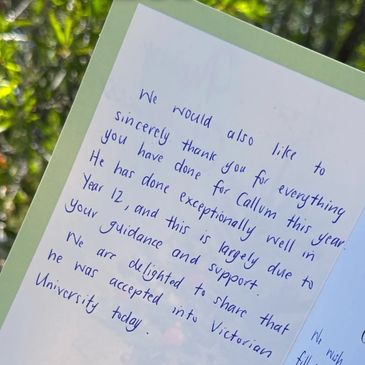 We would also like to
sincerely thank you for everything
you have done for Callum this year.
He has done exceptionally well in
Year 12, and this is largely due to
your guidance and support.
We are delighted to share that
he was accepted into Victorian
University today.